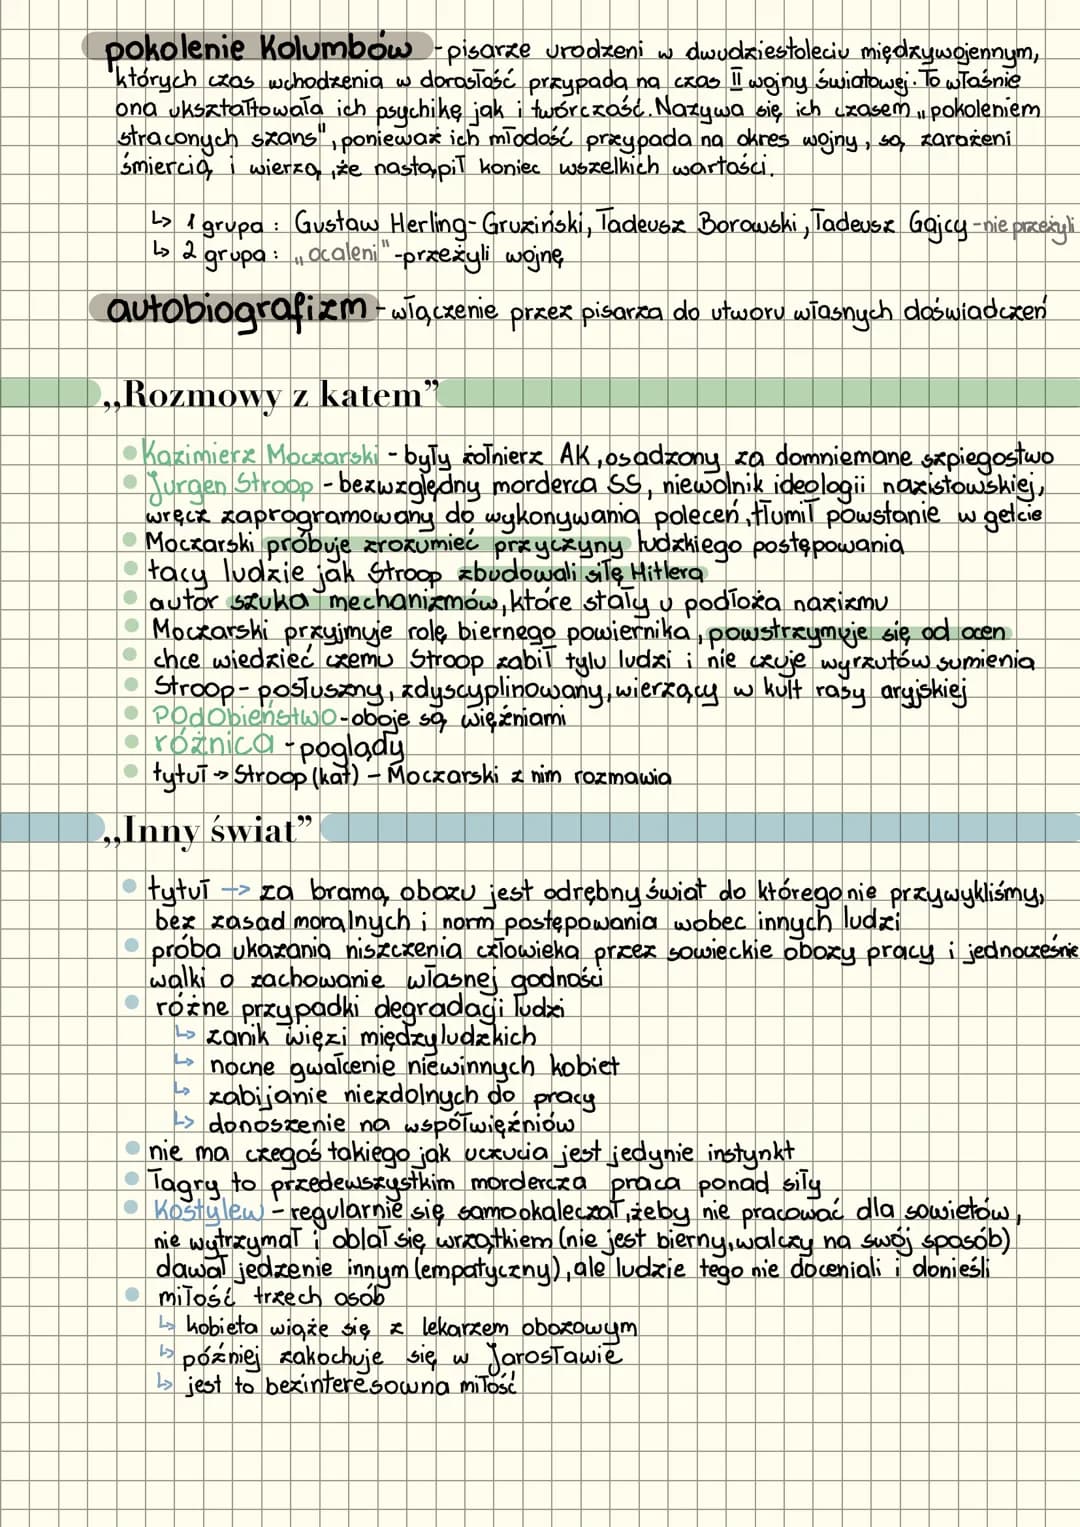 pokolenie Kolumbów - pisarze urodzeni w dwudziestoleciu międzywojennym,
których czas wchodzenia w dorosłość przypada na czas II wojny światowej. To właśnie
ona ukształtowała ich psychikę jak i twórczość. Nazywa się ich czasem „pokoleniem
straconych szans", ponieważ ich młodość przypada na okres wojny, są zarażeni
śmiercią i wierzą, że nastąpił koniec wszelkich wartości.
↳ 1 grupa: Gustaw Herling-Gruziński, Tadeusz Borowski, Tadeusz Gajcy - nie przeżyli
↳ 2 grupa: „ocaleni" - przeżyli wojnę
autobiografizm - włączenie przez pisarza do utworu własnych doświadczeń
„Rozmowy z katem”
• Kazimierz Moczarski - były żołnierz AK, osadzony za domniemane szpiegostwo
• Jurgen Stroop - bezwzględny morderca SS, niewolnik ideologii nazistowskiej,
wręcz zaprogramowany do wykonywania poleceń, tłumił powstanie w getcie
• Moczarski próbuje zrozumieć przyczyny ludzkiego postępowania
• tacy ludzie jak Stroop zbudowali siłę Hitlera
• autor szuka mechanizmów, które stały u podłoża nazizmu
• Moczarski przyjmuje rolę biernego powiernika, powstrzymuje się od ocen
• chce wiedzieć czemu Stroop zabił tylu ludzi i nie czuje wyrzutów sumienia
• Stroop - posłuszny, zdyscyplinowany, wierzący w kult rasy aryjskiej
• POdObieństwo - oboje są więźniami
• różnica - poglądy
• tytuł → Stroop (kat) - Moczarski z nim rozmawia
„Inny świat”
• tytuł --> za bramą obozu jest odrębny świat do którego nie przywykliśmy,
bez zasad moralnych i norm postępowania wobec innych ludzi
• próba ukazania niszczenia człowieka przez sowieckie obozy pracy i jednocześnie
walki o zachowanie własnej godności
• różne przypadki degradacji ludzi
↳ zanik więzi międzyludzkich
↳ nocne gwałcenie niewinnych kobiet
↳ zabijanie niezdolnych do pracy
↳ donoszenie na współwięźniów
• nie ma czegoś takiego jak uczucia jest jedynie instynkt
• Łagry to przedewszystkim mordercza praca ponad siły
• Kostylew - regularnie się samookaleczał, żeby nie pracować dla sowietów,
nie wytrzymał i oblał się wrzątkiem (nie jest bierny, walczy na swój sposób)
dawał jedzenie innym (empatyczny), ale ludzie tego nie doceniali i donieśli
• miłość trzech osób
↳ kobieta wiąże się z lekarzem obozowym
↳ później zakochuje się w Jarosławie
↳ jest to bezinteresowna miłość